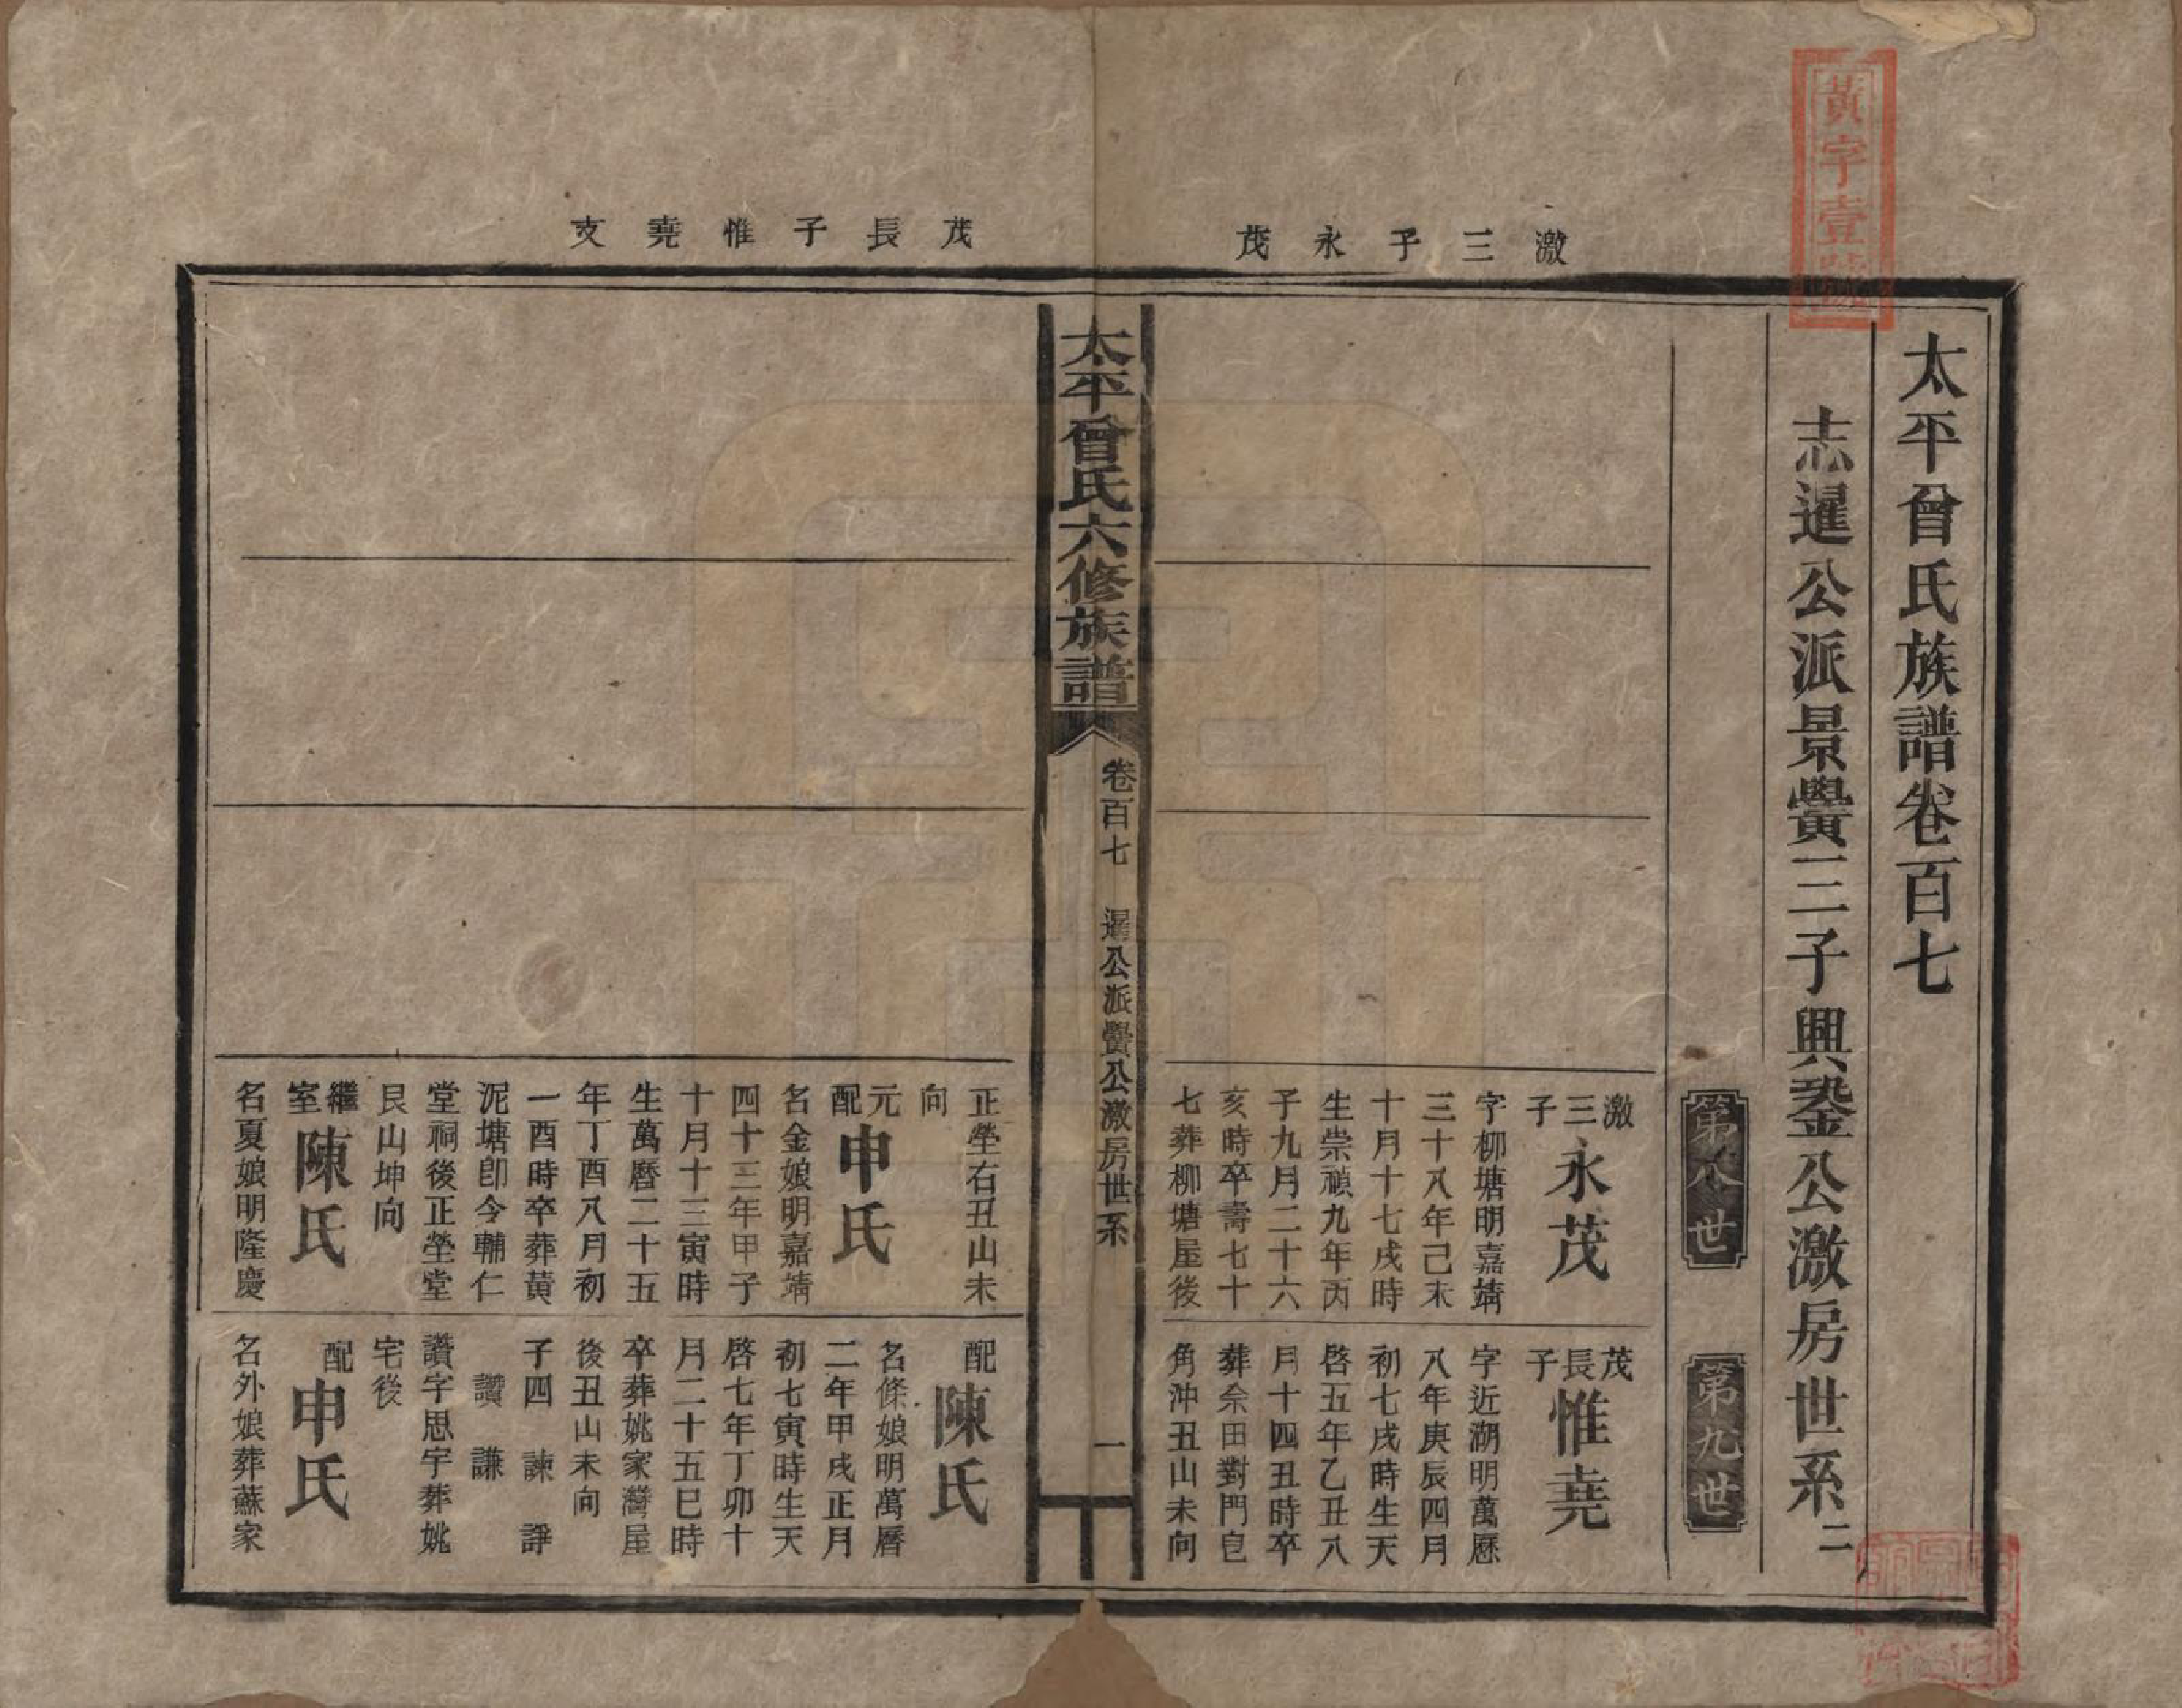 黃字壹號
太平曾氏族譜卷百七
志暹公派景黌三子興鋆公激房世系二
第八世
第九世
激三子永茂
激三子
永茂
字柳塘明嘉靖
三十八年己未
十月十七戌時
生崇禎九年丙
子九月二十六
亥時卒壽七十
七葬柳塘屋後
茂長子
惟堯
字近湖明萬曆
八年庚辰四月
初七戌時生天
啓五年乙丑八
月十四丑時卒
葬余田對門皀
角沖丑山未向
太平曾氏六修族譜
卷百七
暹公派黌公激房世系
一
茂長子惟堯支
正塋右丑山未
向
元配
申氏
名金娘明嘉靖
四十三年甲子
十月十三寅時
生萬曆二十五
年丁酉八月初
一酉時卒葬黃
泥塘卽今輔仁
堂祠後正塋堂
艮山坤向
繼室
陳氏
名夏娘明隆慶
配
陳氏
名條娘明萬曆
二年甲戌正月
初七寅時生天
啓七年丁卯十
月二十五巳時
卒葬姚家灣屋
後丑山未向
子四 諫 諍
讚 謙
讚字思宇葬姚
宅後
配
申氏
名外娘葬蘇家